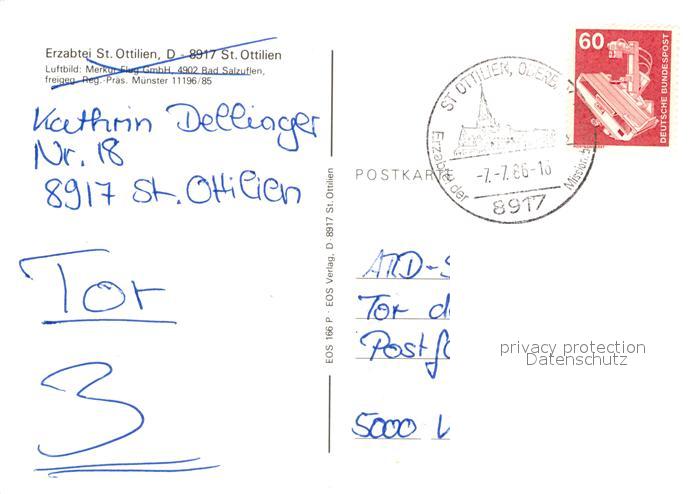 Erzabtei St. Ottilien, D - 8917 St. Ottilien
Luftbild: Merkur Flug GmbH, 4902 Bad Salzuflen,
freigeg. Reg.-Präs. Münster 11196/85
Kathrin Dellinger
Nr. 18
8917 St. Ottilien
Tor
3
EOS 166 P · EOS Verlag, D 8917 St. Ottilien
POSTKARTE
60
DEUTSCHE BUNDESPOST
ST OTTILIEN, OBERB
Erzabtei der
Mission
-7.-7.86-16
8917
ARD-S
Tor d
Postf
5000
privacy protection
Datenschutz